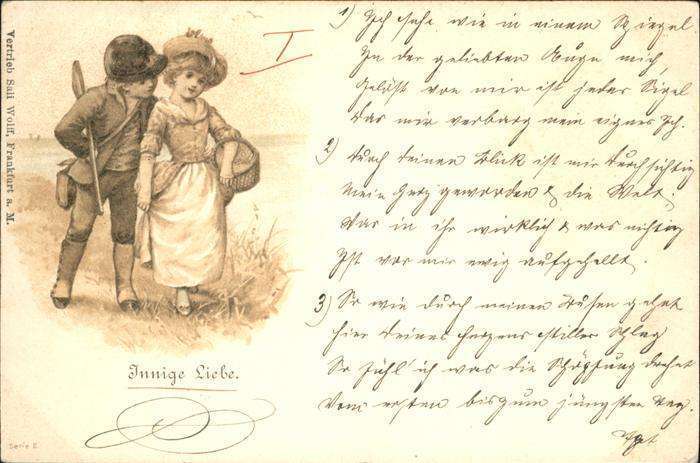 Vertrieb Sali Wolff, Frankfurt a. M.
I
1) Ich sehe wie in einem Spiegel
In der geliebten Auge mich,
Gelöst vor mir ist jedes Sigel
Das mir verbarg mein eignes Ich.
2) Durch deinen Blick ist mir durchsichtig
Mein Herz geworden & die Welt,
Was in ihr wirklich & was nichtig
Ist vor mir ewig aufgehellt.
3) So wie durch meinen Busen gehet
hier deines Herzens stiller Schlag
So fühl' ich was die Schöpfung drehet
Vom ersten bis zum jüngsten Tag.
Innige Liebe.
Serie E